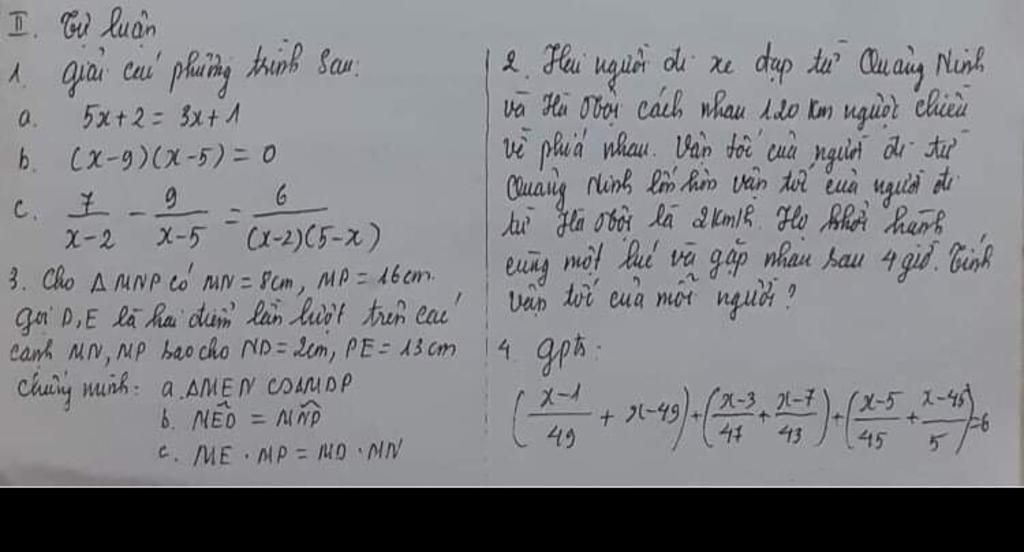 II. Tự luận
1. Giải các phương trình sau:
a. 5x+2 = 3x+1
b. (x-9)(x-5) = 0
c. 7/(x-2) - 9/(x-5) = 6/((x-2)(5-x))
3. Cho Δ MNP có MN = 8cm, MP = 16cm.
gọi D, E là hai điểm lần lượt trên các
cạnh MN, MP sao cho ND = 2cm, PE = 13cm
chứng minh: a. ΔMEN ∽ ΔMDP
b. MÊD = MN̂P
c. ME . MP = MD . MN
2. Hai người đi xe đạp từ Quảng Ninh
và Hà Nội cách nhau 120 km người chiều
về phía nhau. Vận tốc của người đi từ
Quảng Ninh lớn hơn vận tốc của người đi
từ Hà Nội là 2km/h. Họ khởi hành
cùng một lúc và gặp nhau sau 4 giờ. Tính
vận tốc của mỗi người?
4. gpt:
((x-1)/49 + x-49) + ((x-3)/47 + (x-7)/43) + ((x-5)/45 + (x-45)/5) = 6